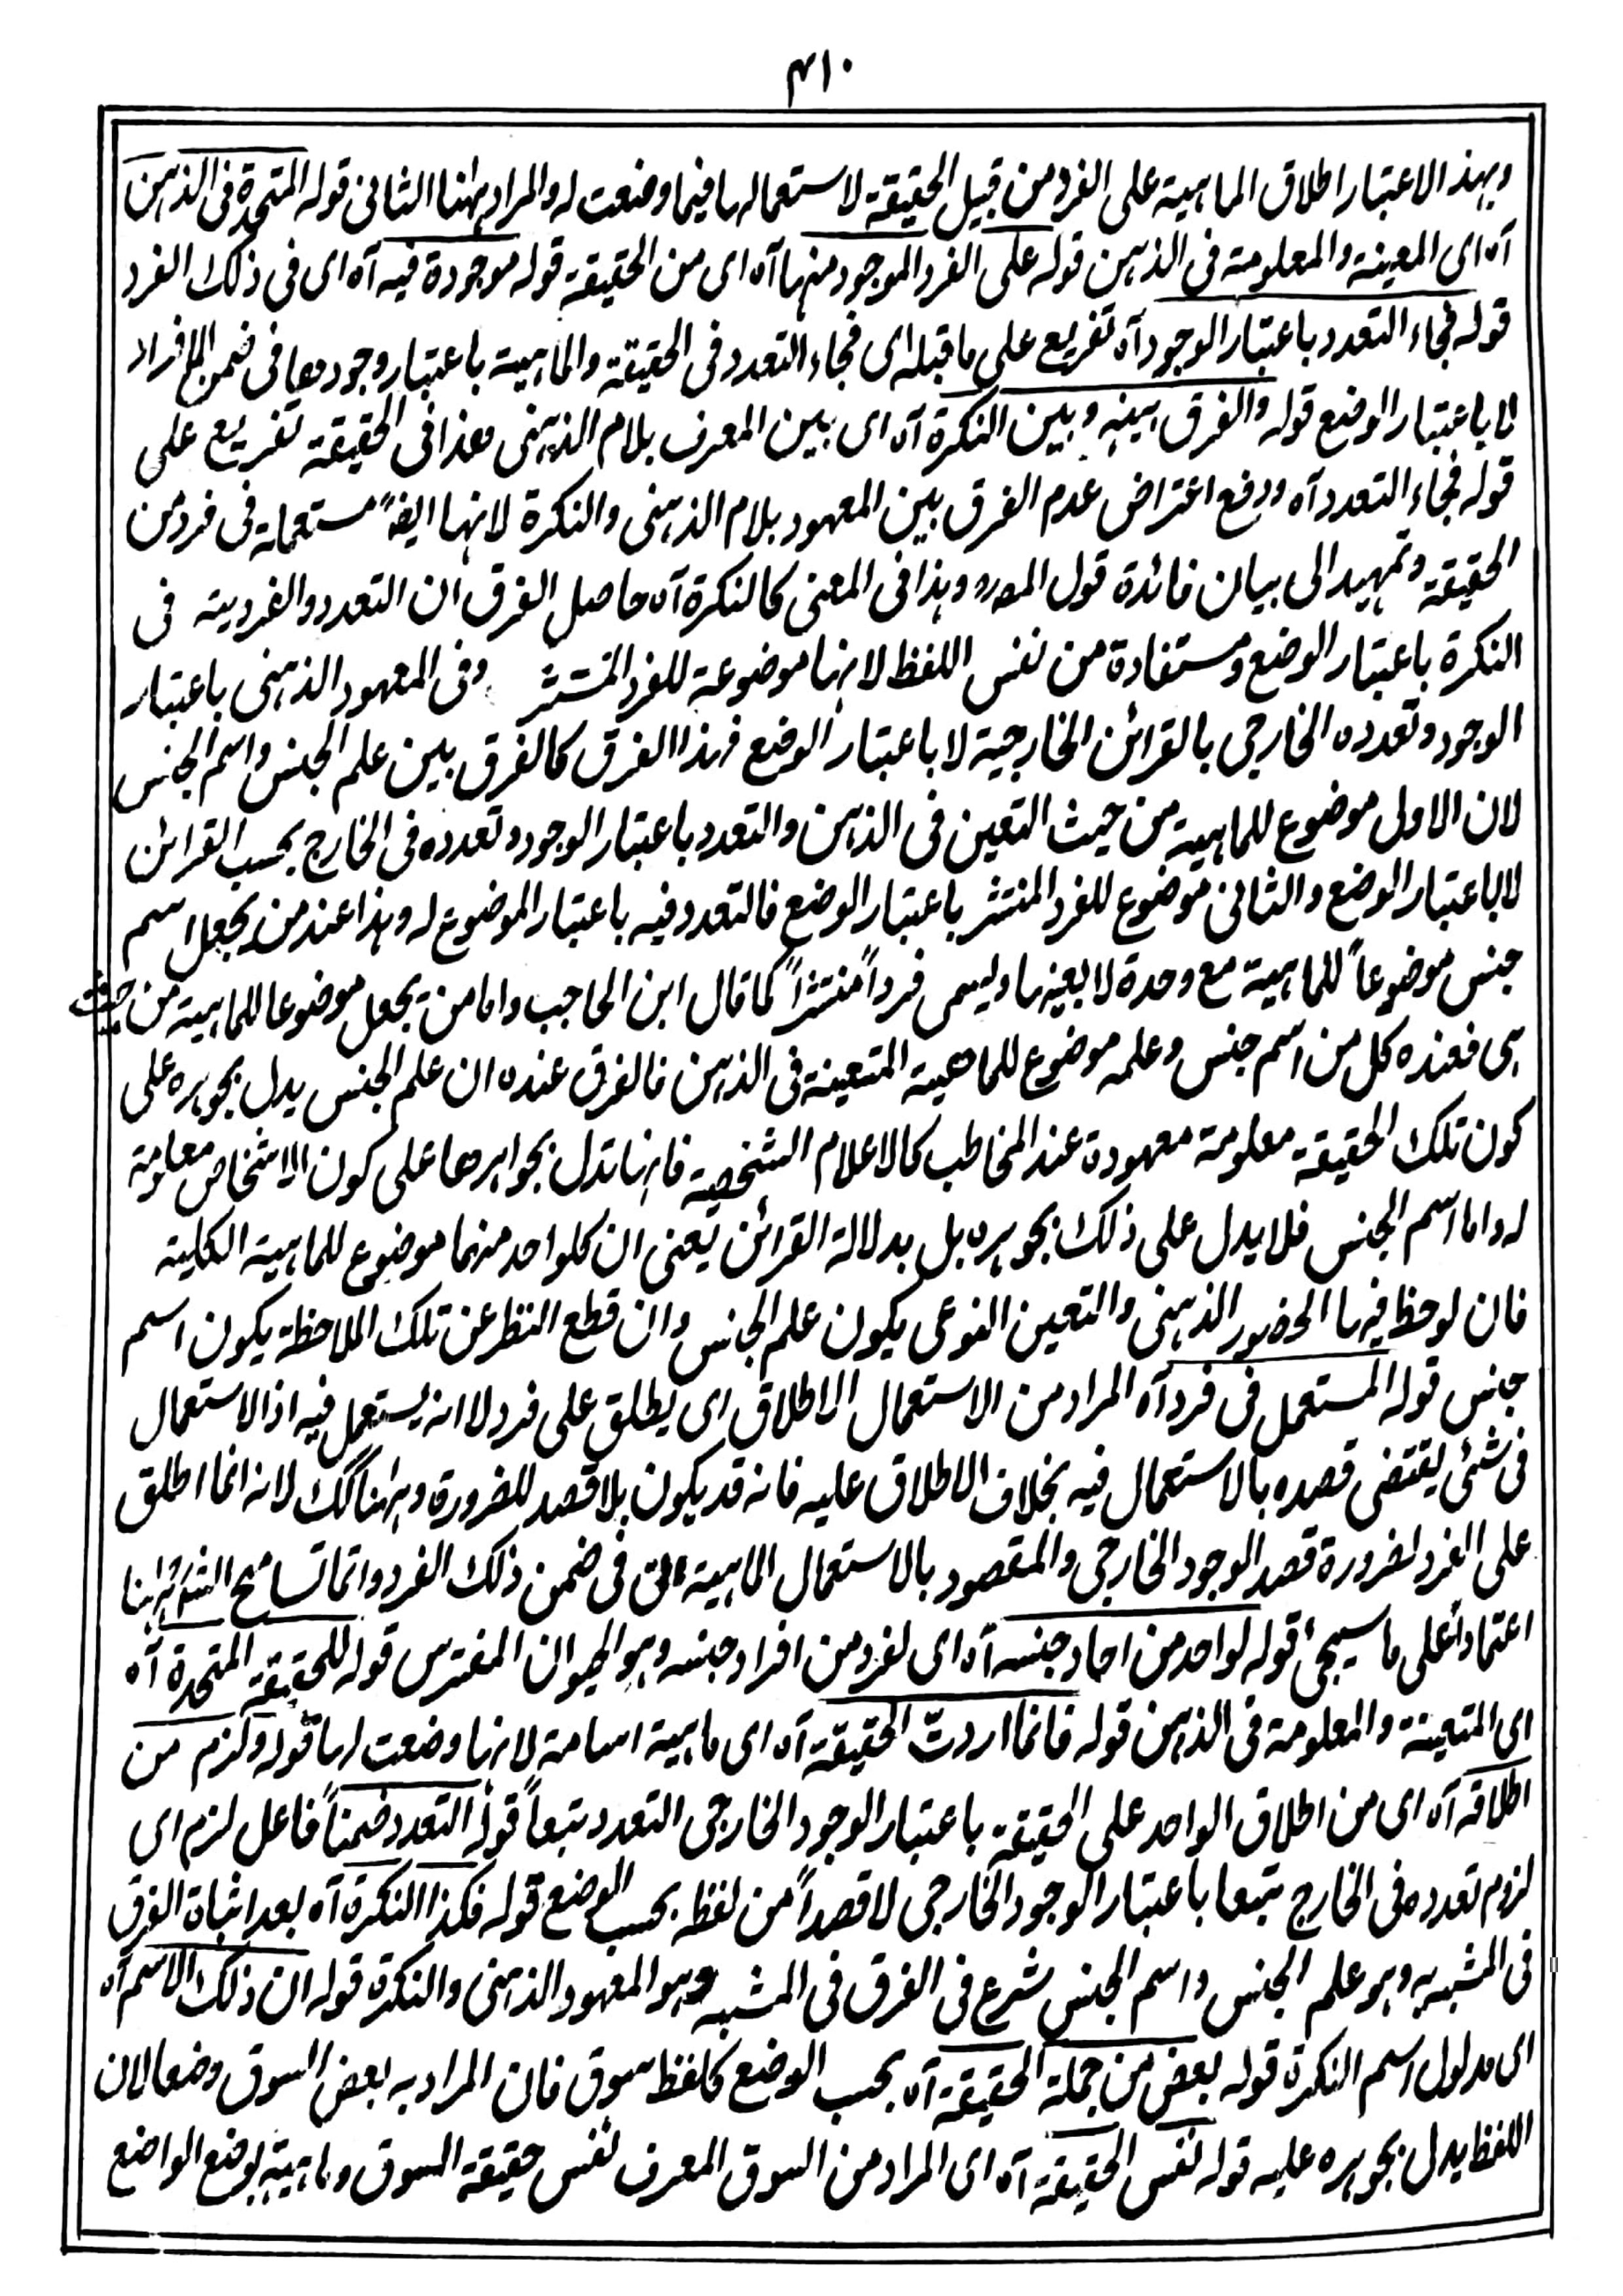 ۳۱۰
وبهذ الاعتبار اطلاق الماهية على الفرد من قبيل الحقيقة لاستعمالها فيما وضعت له والمراد ههنا الثانى قوله المتحدة فى الذهن
آه اى المعينة والمعلومة فى الذهن قوله على الفرد الموجود منها آه اى من الحقيقة قوله موجودة فيه آه اى فى ذلك الفرد
قوله فجاء التعدد باعتبار الوجود آه تفريع على ما قبله اى فجاء التعدد فى الحقيقة والماهية باعتبار وجودها فى ضمن الافراد
لا باعتبار الوضع قوله والفرق بينه وبين النكرة آه اى بين المعرف بلام الذهنى وهذا فى الحقيقة تفريع على
قوله فجاء التعدد آه ودفع اعتراض عدم الفرق بين المعهود بلام الذهنى والنكرة لانها ايضاً مستعملة فى فرد من
الحقيقة وتمهيد الى بيان فائدة قول المصره وهذا فى المعنى كالنكرة آه حاصل الفرق ان التعدد والفردية فى
النكرة باعتبار الوضع ومستفادة من نفس اللفظ لانها موضوعة للفرد المنتشر وفى المعهود الذهنى باعتبار
الوجود وتعدده الخارجى بالقرائن الخارجية لا باعتبار الوضع فهذا الفرق كالفرق بين علم الجنس واسم الجنس
لان الاول موضوع للماهية من حيث التعين فى الذهن والتعدد باعتبار الوجود وتعدده فى الخارج بحسب القرائن
لا باعتبار الوضع والثانى موضوع للفرد المنتشر باعتبار الوضع فالتعدد فيه باعتبار الموضوع له وهذا عند من يجعل اسم
جنس موضوعاً للماهية مع وحدة لا بعينها ويسمى فرداً منتشراً كما قال ابن الحاجب واما من يجعل موضوعا للماهية من حيث
هى فعنده كل من اسم جنس وعلمه موضوع للماهية المتعينة فى الذهن فالفرق عنده ان علم الجنس يدل بجوهره على
كون تلك الحقيقة معلومة معهودة عند المخاطب كالاعلام الشخصية فانها تدل بجواهرها على كون الاشخاص معلومة
له واما اسم الجنس فلا يدل على ذلك بجوهره بل بدلالة القرائن يعنى ان كلواحد منهما موضوع للماهية الكلية
فان لوحظ فيها الحضور الذهنى والتعين النوعى يكون علم الجنس وان قطع النظر عن تلك الملاحظة يكون اسم
جنس قوله المستعمل فى فرد آه المراد من الاستعمال الاطلاق اى يطلق على فرد لا انه يستعمل فيه اذ الاستعمال
فى شئى يقتضى قصده بالاستعمال فيه بخلاف الاطلاق عليه فانه قد يكون بلا قصد للضرورة وههنا كك لانه انما اطلق
على الفرد لضرورة قصد الوجود الخارجى والمقصود بالاستعمال الماهية التى فى ضمن ذلك الفرد وانما تسامح الش ههنا
اعتماداً على ما سيجئ قوله لواحد من احاد جنسه آه اى لفرد من افراد جنسه وهو الحيوان المفترس قوله للحقيقة المتحدة آه
اى المتعينة والمعلومة فى الذهن قوله فانما اردت الحقيقة آه اى ماهية اسامة لانها وضعت لها قوله ولزم من
اطلاقه آه اى من اطلاق الواحد على الحقيقة باعتبار الوجود الخارجى التعدد تبعاً قوله التعدد ضمناً فاعل لزم اى
لزوم تعدده فى الخارج تبعا باعتبار الوجود الخارجى لا قصداً من لفظه بحسب الوضع قوله فكذا النكرة آه بعد اثباة الفرق
فى المشبه به وهو علم الجنس واسم الجنس شرع فى الفرق فى المشبه وهو المعهود الذهنى والنكرة قوله ان ذلك الاسم آه
اى مدلول اسم النكرة قوله بعض من جملة الحقيقة آه بحسب الوضع كلفظ سوق فان المراد به بعض السوق وضعا لان
اللفظ يدل بجوهره عليه قوله نفس الحقيقة آه اى المراد من السوق المعرف نفس حقيقة السوق وماهيته بوضع الواضع